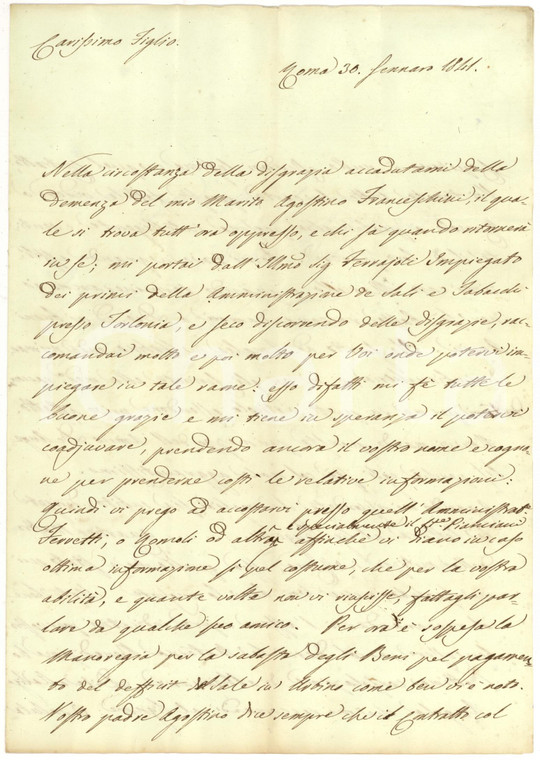 Carissimo Figlio.
Roma 30. Gennaro 1841.
Nella circostanza della disgrazia accadutami della
demenza del mio Marito Agostino Franceschini, il qua-
le si trova tutt'ora oppresso, e chi sà quando ritornerà
in se; mi portai dall'Illmo Sig Terrasoli Impiegato
dei primi della Amministrazione de Sali e Tabacchi
presso Torlonia, e seco discorrendo delle disgrazie, rac-
comandai molto e poi molto per Voi onde potervi im-
piegare in tale rame: esso difatti mi fè tutte le
buone grazie e mi tiene in speranza il potervi
coadjuvare, prendendo ancora il vostro nome e cogno-
me per prenderne costì le relative informazioni:
Quindi vi prego ad accostarvi presso quell'Amministrat
e specialmente il Pianciani
Fervetti, o Romoli od altri affinche vi diano in caso
ottima informazione si pel costume, che per la vostra
abilità, e quante volte non vi riuscisse, fattegli par-
lare da qualche suo amico. Per ora è sospesa la
Manoregia per la subasta degli Beni pel pagamen-
to del deficit Sale in Urbino come ben vi è noto.
Vostro padre Agostino dice sempre che il Contratto col